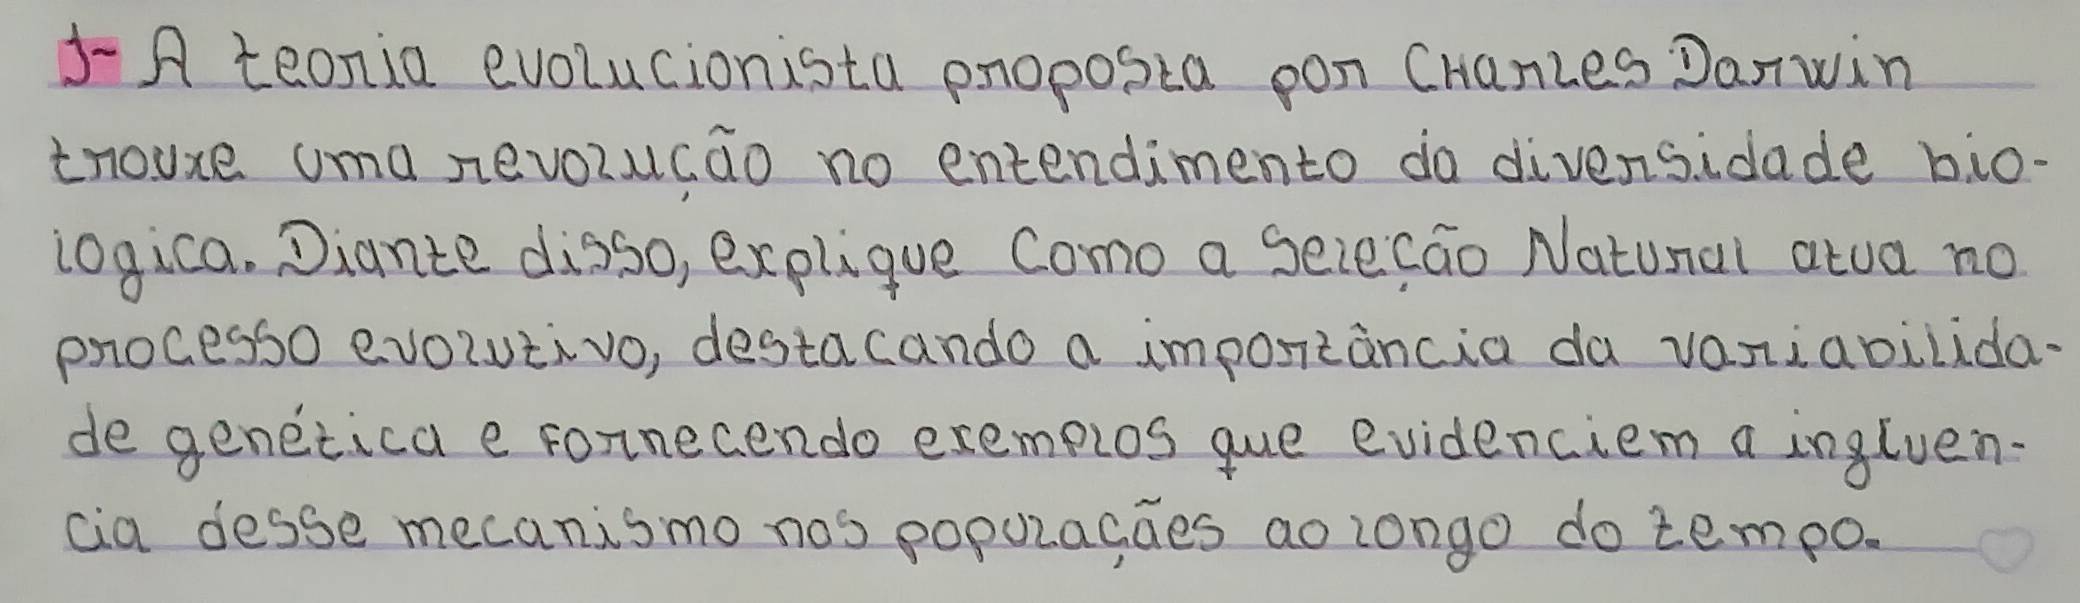 1- A teoria evolucionista proposta por CHarles Darwin
trouxe uma revolução no entendimento da diversidade bio-
logica. Diante disso, explique Como a Seleção Natural atua no
processo evolutivo, destacando a importância da variabilida-
de genética e fornecendo exemplos que evidenciem a influen-
cia desse mecanismo nas populaçães ao longo do tempo.